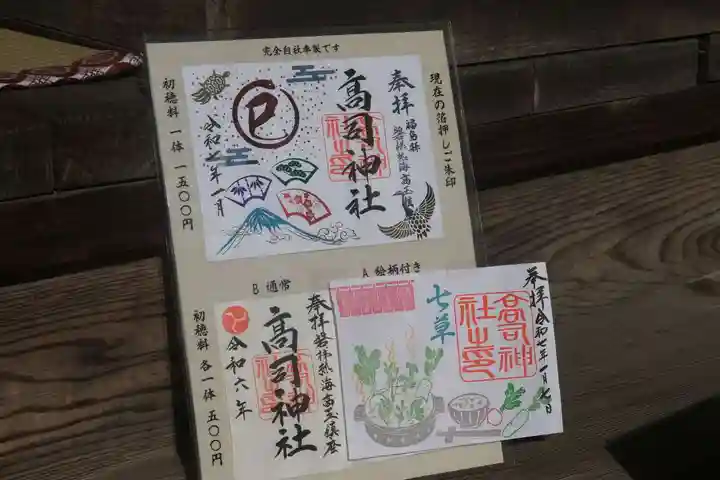 完全自社奉製です
現在の箔押しご朱印
奉拝
福島縣
磐梯熱海高玉鎮座
高司神社
巳
令和七年一月
初穂料 一体 一五〇〇円
A 絵柄付き
奉拝 令和七年一月七日
高司神
社之印
七草
B 通常
奉拝 磐梯熱海高玉鎮座
高司神社
令和六年
初穂料 各一体 五〇〇円